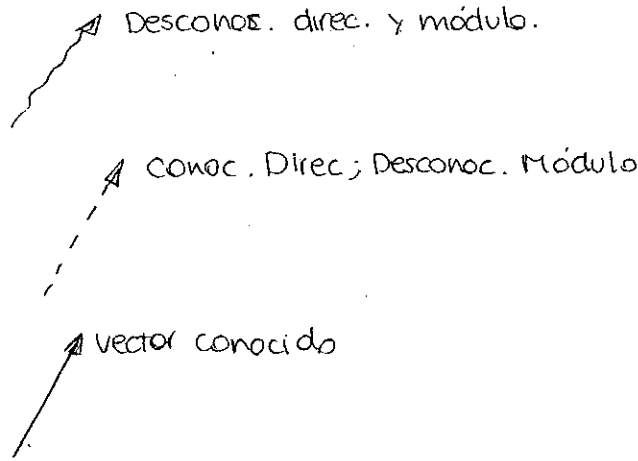 Desconoc. direc. y módulo.
Conoc. Direc; Desconoc. Módulo
Vector conocido